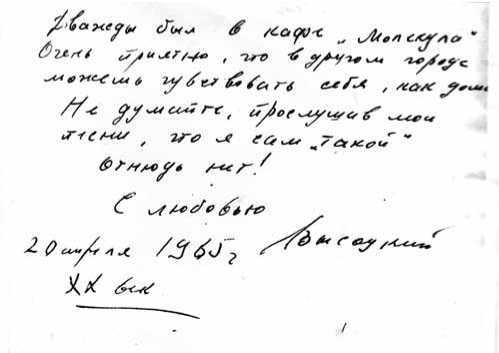 Дважды был в кафе „Молекула"
Очень приятно, что в другом городе
можешь чувствовать себя, как дома
Не думайте, прослушав мои
песни, что я сам „такой"
Отнюдь нет!
С любовью
20 апреля 1965 г Высоцкий
XX век